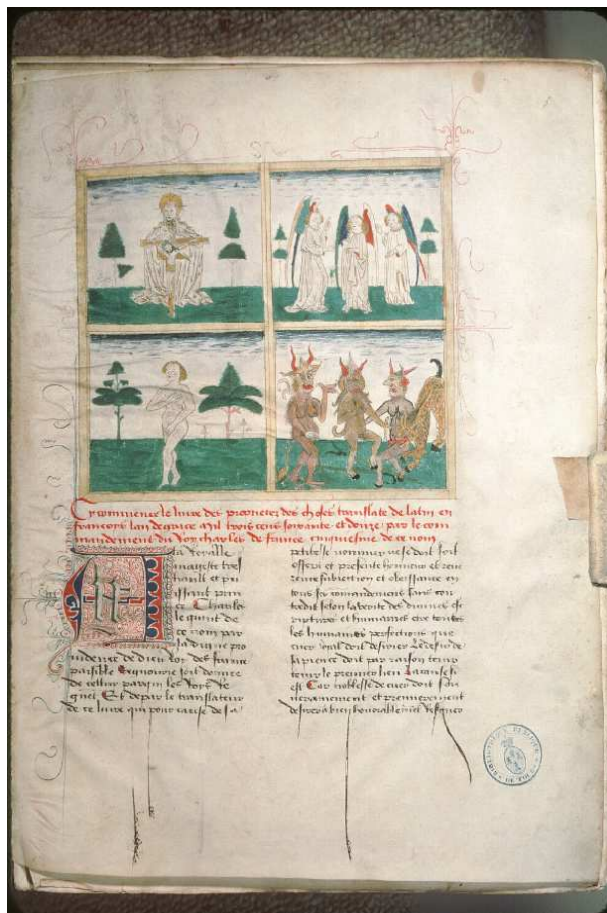 Cy commence le livre des proprietez des choses translate de latin en
francoys lan de grace mil trois cens soixante et douze par le com
mandement du roy charles de france cinquiesme de ce nom
A la royalle
mageste tres
hault et pui
issant prin
ce Charles
le quint de
ce nom par
la digne pro
uidence de dieu roy de france
paisible seignourie soit donnee
de celluy par qui les roys re
gnet Et de par le translateur
de ce livre qui pour cause de sa
petitesse nommer ne se doit soit
offert et presente honneur et reue
rence subiection et obeissance en
tous ses commandemens sans con
tredit selon la verite des diuines es
criptures et humaines entre toutes
les humaines perfections que
cuer royal doit desirer le desir de
sapience doit par raison tenir
le premier lieu La raison si
est Car noblesse de cuer doit sou
uerainement et premierement
desirer